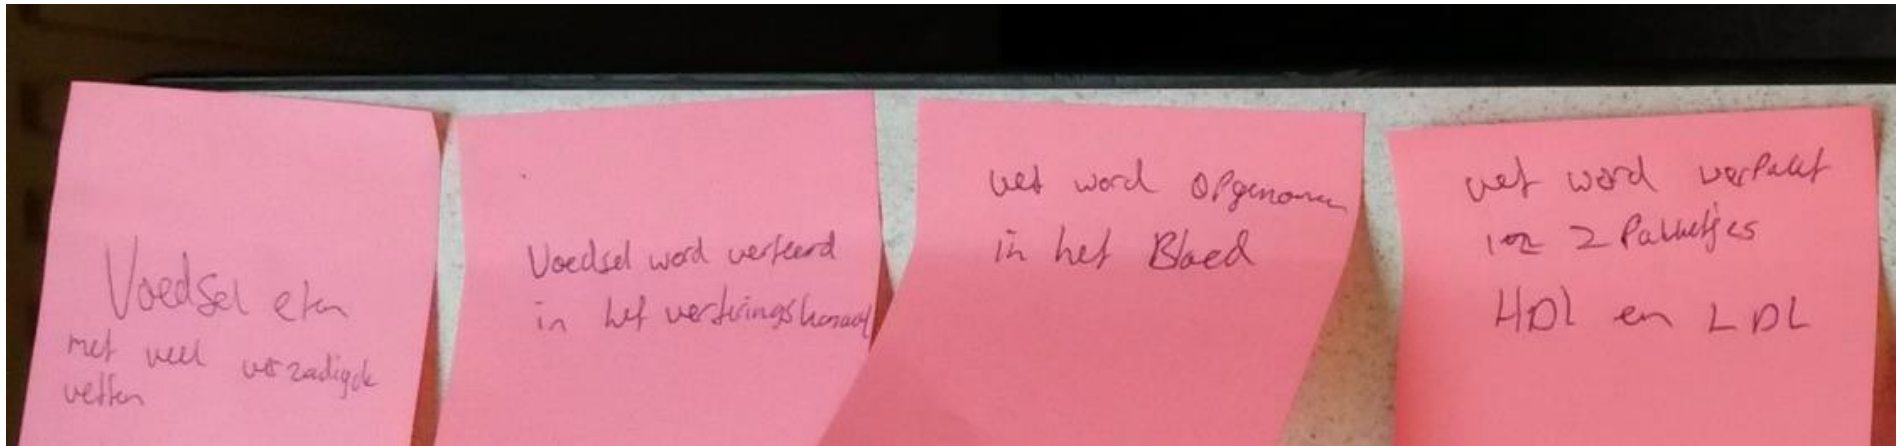 Voedsel eten
met veel verzadigde
vetten
Voedsel word verteerd
in het verteringskanaal
vet word opgenomen
in het Bloed
vet word verpakt
in 2 Pakketjes
HDL en LDL